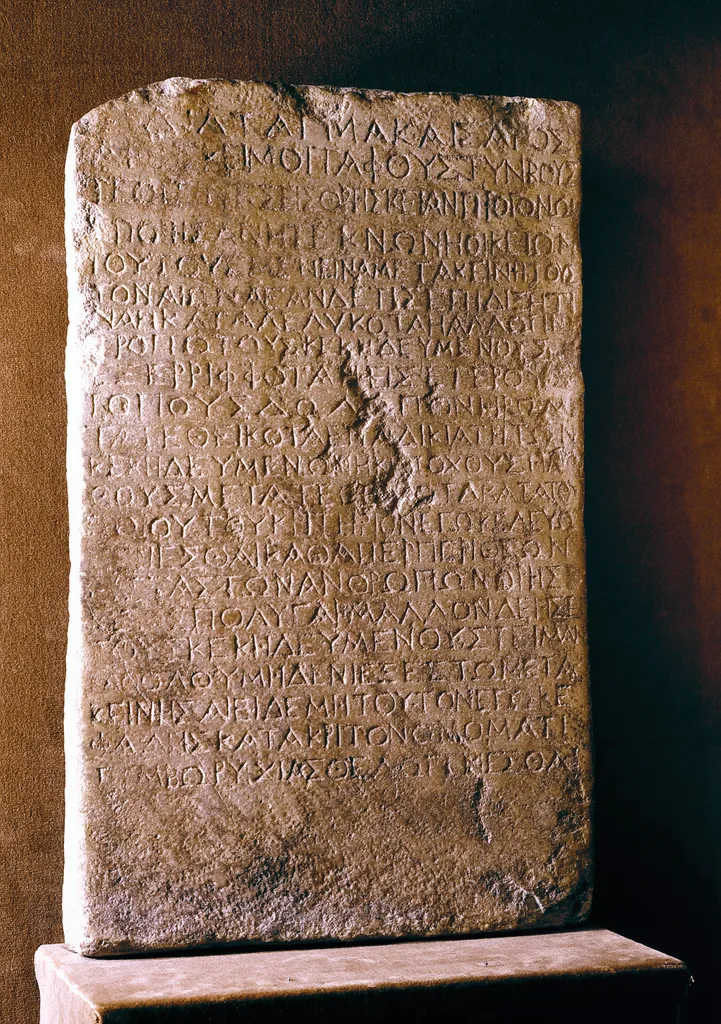 ΔΙΑΤΑΓΜΑ ΚΑΙΣΑΡΟΣ
ΜΟΙ ΤΑΦΟΥΣ ΤΥΝΒΟΥΣ
ΤΕ ΕΙΣ ΘΡΗΣΚΕΙΑΝ ΠΡΟΓΟΝΩΝ
ΕΠΟΙΗΣΑΝ Η ΤΕΚΝΩΝ Η ΟΙΚΕΙΩΝ
ΤΟΥΤΟΥΣ ΜΕΝΕΙΝ ΑΜΕΤΑΚΕΙΝΗΤΟΥΣ
ΤΟΝ ΑΙΩΝΑ ΕΑΝ ΔΕ ΤΙΣ ΕΠΙΔΙΞΗ ΤΙ
ΝΑ Η ΚΑΤΑΛΕΛΥΚΟΤΑ Η ΑΛΛΩ ΤΙΝΙ
ΤΡΟΠΩ ΤΟΥΣ ΚΕΚΗΔΕΥΜΕΝΟΥΣ
ΕΞΕΡΡΙΦΦΟΤΑ Η ΕΙΣ ΕΤΕΡΟΥΣ
ΤΟΠΟΥΣ ΔΩΛΩ ΠΟΝΗΡΩ ΜΕ
ΤΑΤΕΘΙΚΟΤΑ ΕΠ ΑΔΙΚΙΑ ΤΗ ΤΩΝ
ΚΕΚΗΔΕΥΜΕΝΩΝ Η ΚΑΤΟΧΟΥΣ Η ΛΙ
ΘΟΥΣ ΜΕΤΑΤΕΘΙΚΟΤΑ ΚΑΤΑ ΤΟΥ
ΤΟΙΟΥΤΟΥ ΚΡΙΤΗΡΙΟΝ ΕΓΩ ΚΕΛΕΥΩ
ΓΕΝΕΣΘΑΙ ΚΑΘΑΠΕΡ ΠΕΡΙ ΘΕΩΝ
ΤΑΣ ΤΩΝ ΑΝΘΡΟΠΩΝ ΘΡΗΣ
ΠΟΛΥ ΓΑΡ ΜΑΛΛΟΝ ΔΕΗΣΕΙ
ΤΟΥΣ ΚΕΚΗΔΕΥΜΕΝΟΥΣ ΤΕΙΜΑΝ
ΚΑΘΟΛΟΥ ΜΗΔΕΝΙ ΕΞΕΣΤΩ ΜΕΤΑ
ΚΕΙΝΗΣΑΙ ΕΙ ΔΕ ΜΗ ΤΟΥΤΟΝ ΕΓΩ ΚΕ
ΦΑΛΗΣ ΚΑΤΑΚΡΙΤΟΝ ΟΝΟΜΑΤΙ
ΤΥΜΒΩΡΥΧΙΑΣ ΘΕΛΩ ΓΕΝΕΣΘΑΙ